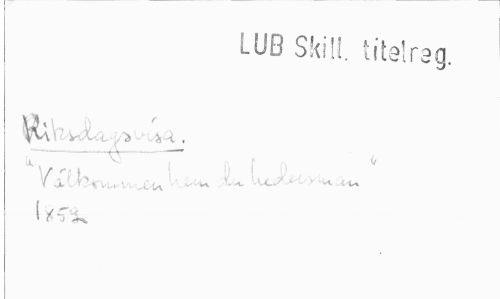 LUB Skill. titelreg.
Riksdagsvisa.
"Välkommen hem du hedersman"
1852